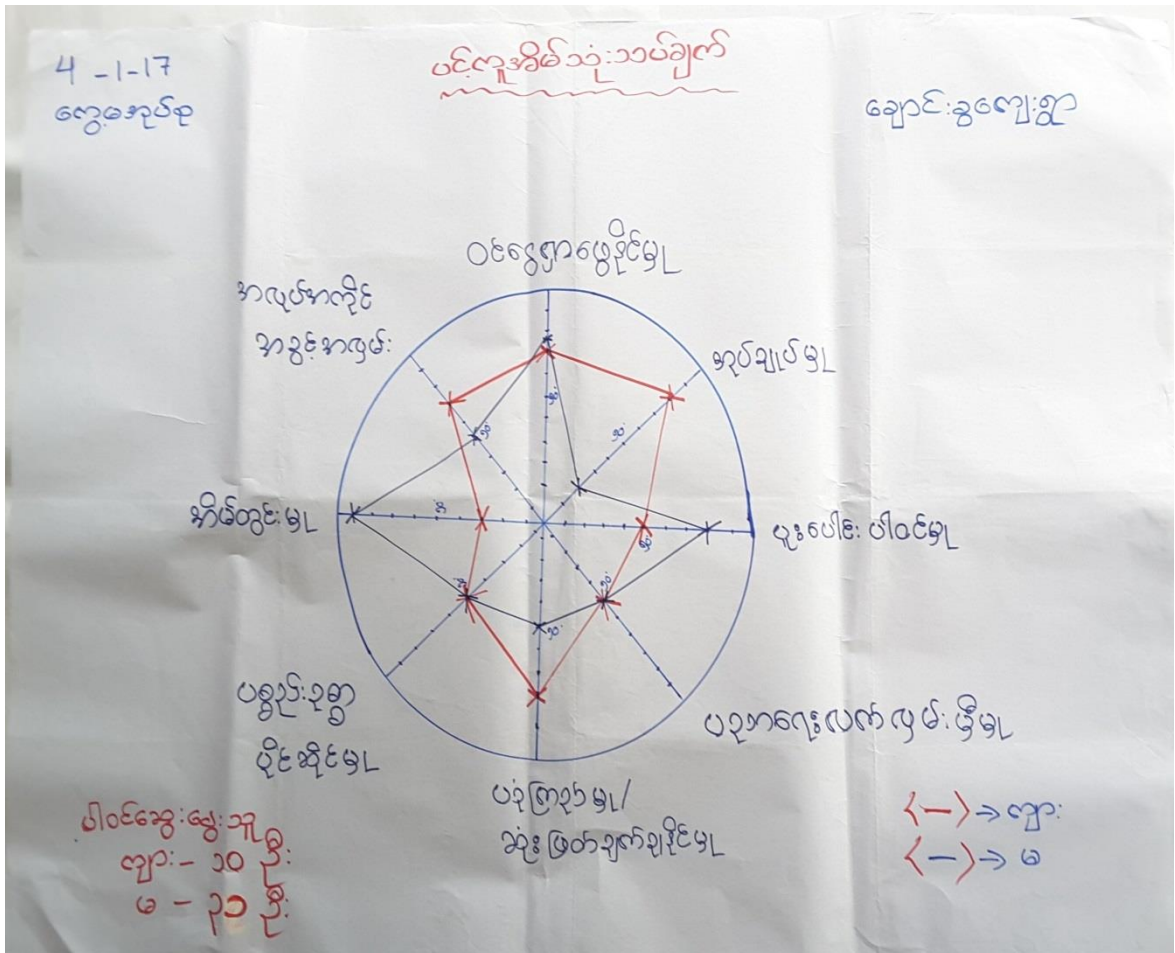 4 -1-17
ကွေ့မအုပ်စု
ပင့်ကူအိမ်သုံးသပ်ချက်
ချောင်းခွကျေးရွာ
ဝင်ငွေရှာဖွေနိုင်မှု
အလုပ်အကိုင်
အခွင့်အလမ်း
အုပ်ချုပ်မှု
၅၀
၅၀
၅၀
၅၀
အိမ်တွင်းမှု
ပူးပေါင်းပါဝင်မှု
၅၀
၅၀
၅၀
၅၀
ပစ္စည်းဥစ္စာ
ပိုင်ဆိုင်မှု
ပညာရေးလက်လှမ်းမှီမှု
ယုံကြည်မှု/
ဆုံးဖြတ်ချက်ချနိုင်မှု
ပါဝင်ဆွေးနွေးသူ
ကျား - ၁၀ ဦး
မ - ၃၁ ဦး
<—> → ကျား
<—> → မ